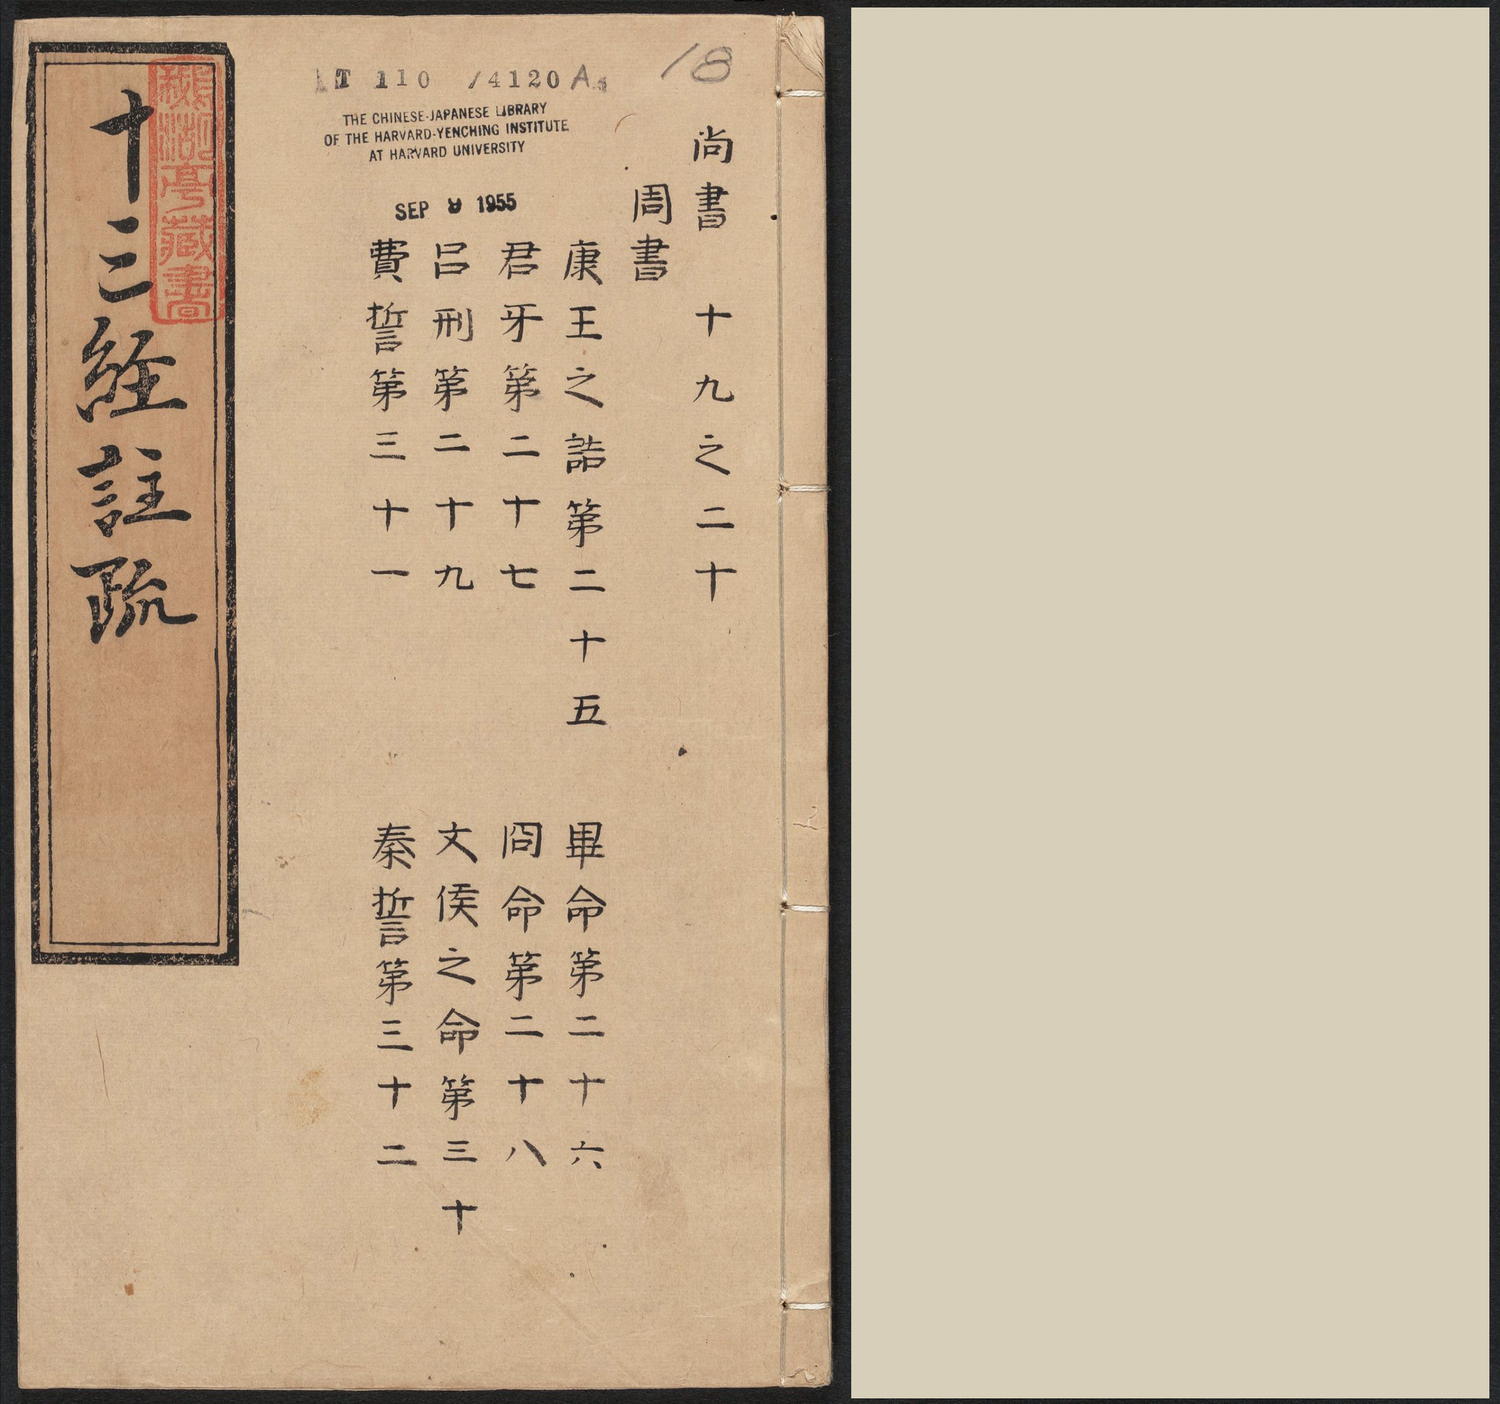 18
T 110 /4120 A
THE CHINESE-JAPANESE LIBRARY
OF THE HARVARD-YENCHING INSTITUTE
AT HARVARD UNIVERSITY
SEP 9 1955
尚書 十九之二十
周書
康王之誥第二十五 畢命第二十六
君牙第二十七 冏命第二十八
呂刑第二十九 文侯之命第三十
費誓第三十一 秦誓第三十二
十三経註疏
鵝湖亭藏書